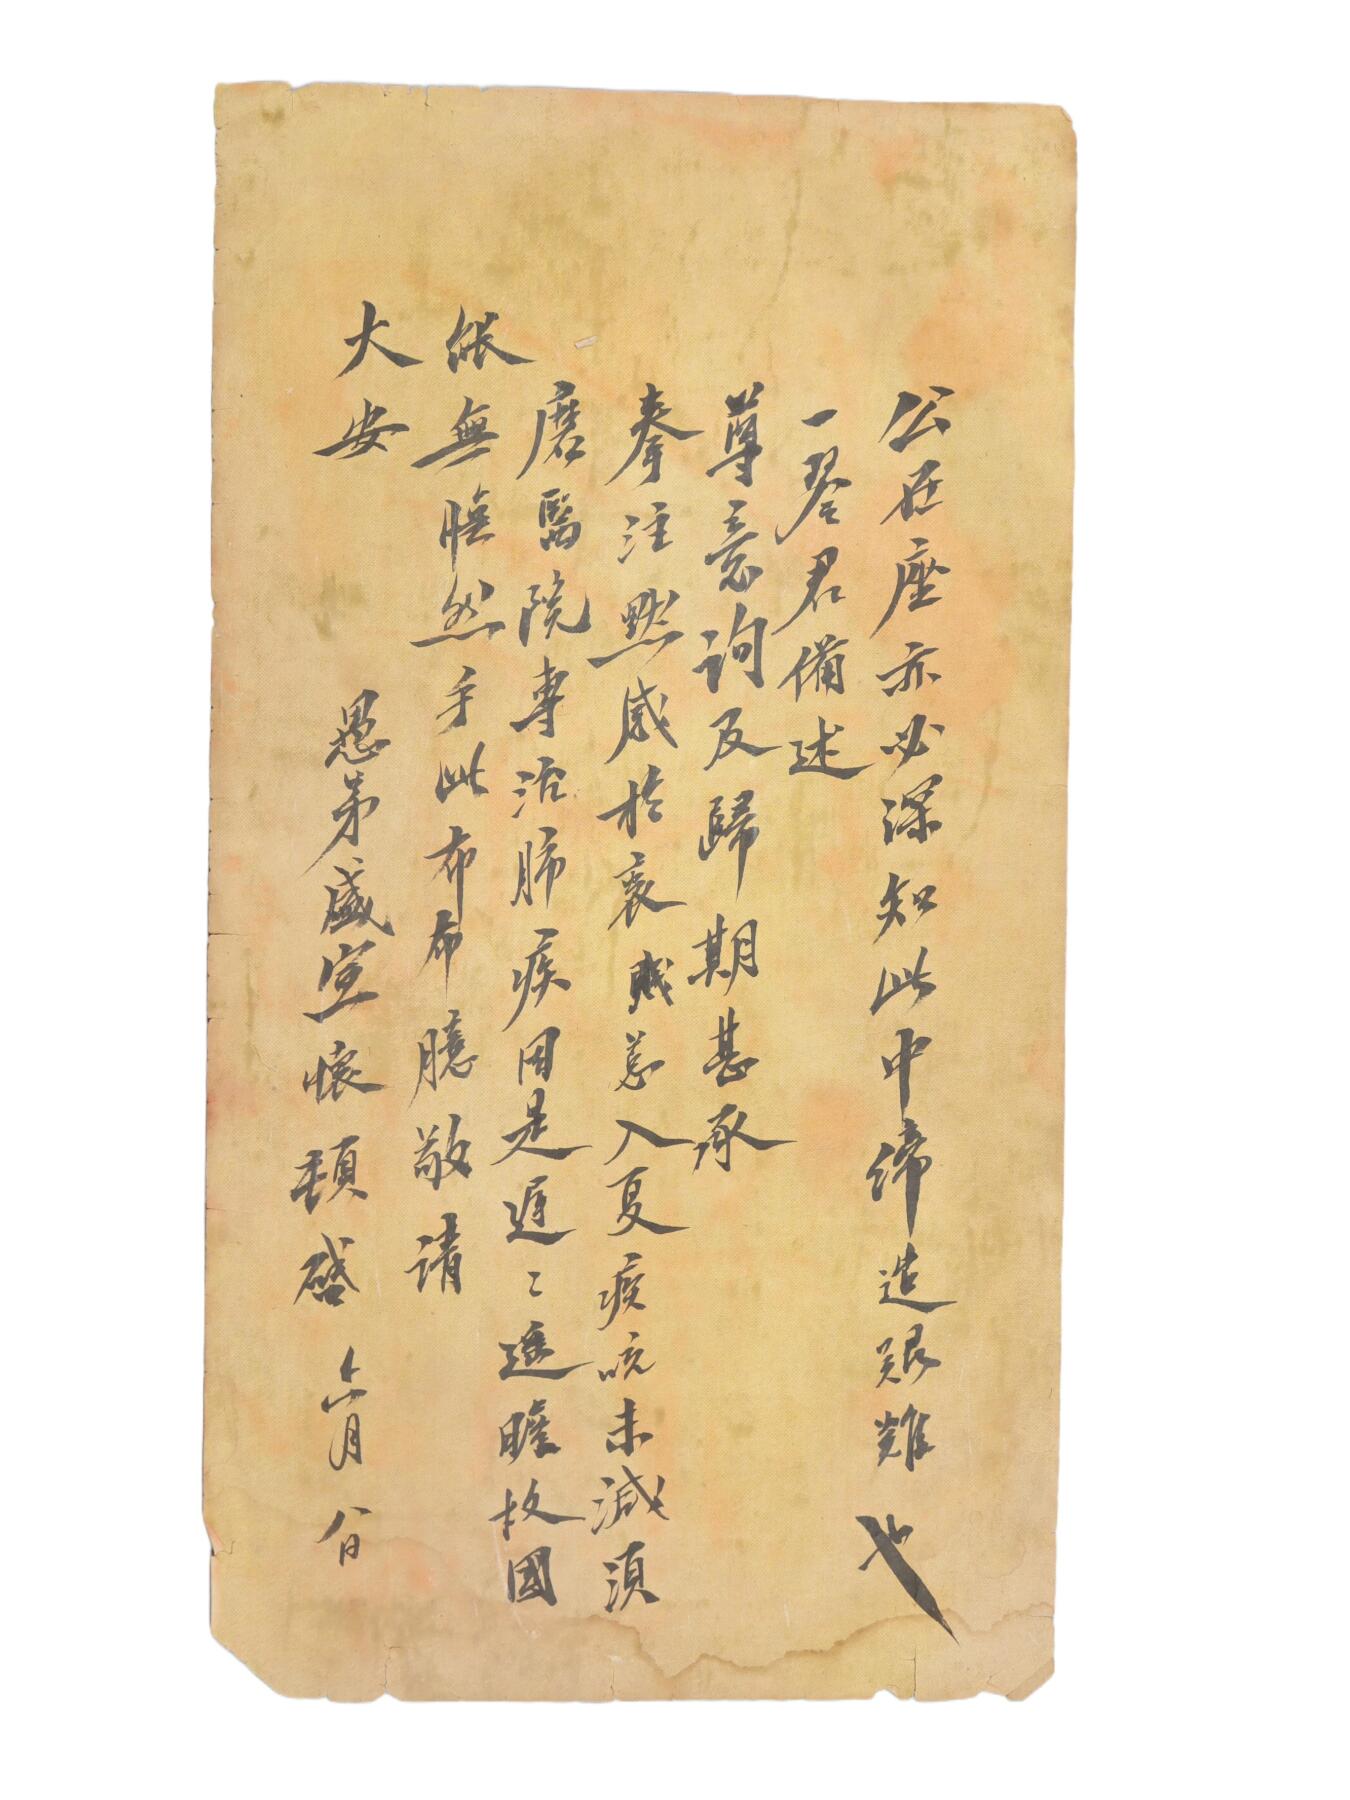 公在座亦必深知此中締造艱難也
一琴君備述
尊意詢及歸期甚承
拳注黙感於衷賤恙入夏痰咳未減須
磨醫院專治肺疾因是遲〻遥瞻故國
能無憮然手此布布臆敬請
大安
愚弟盛宣懷頓啓 六月八日